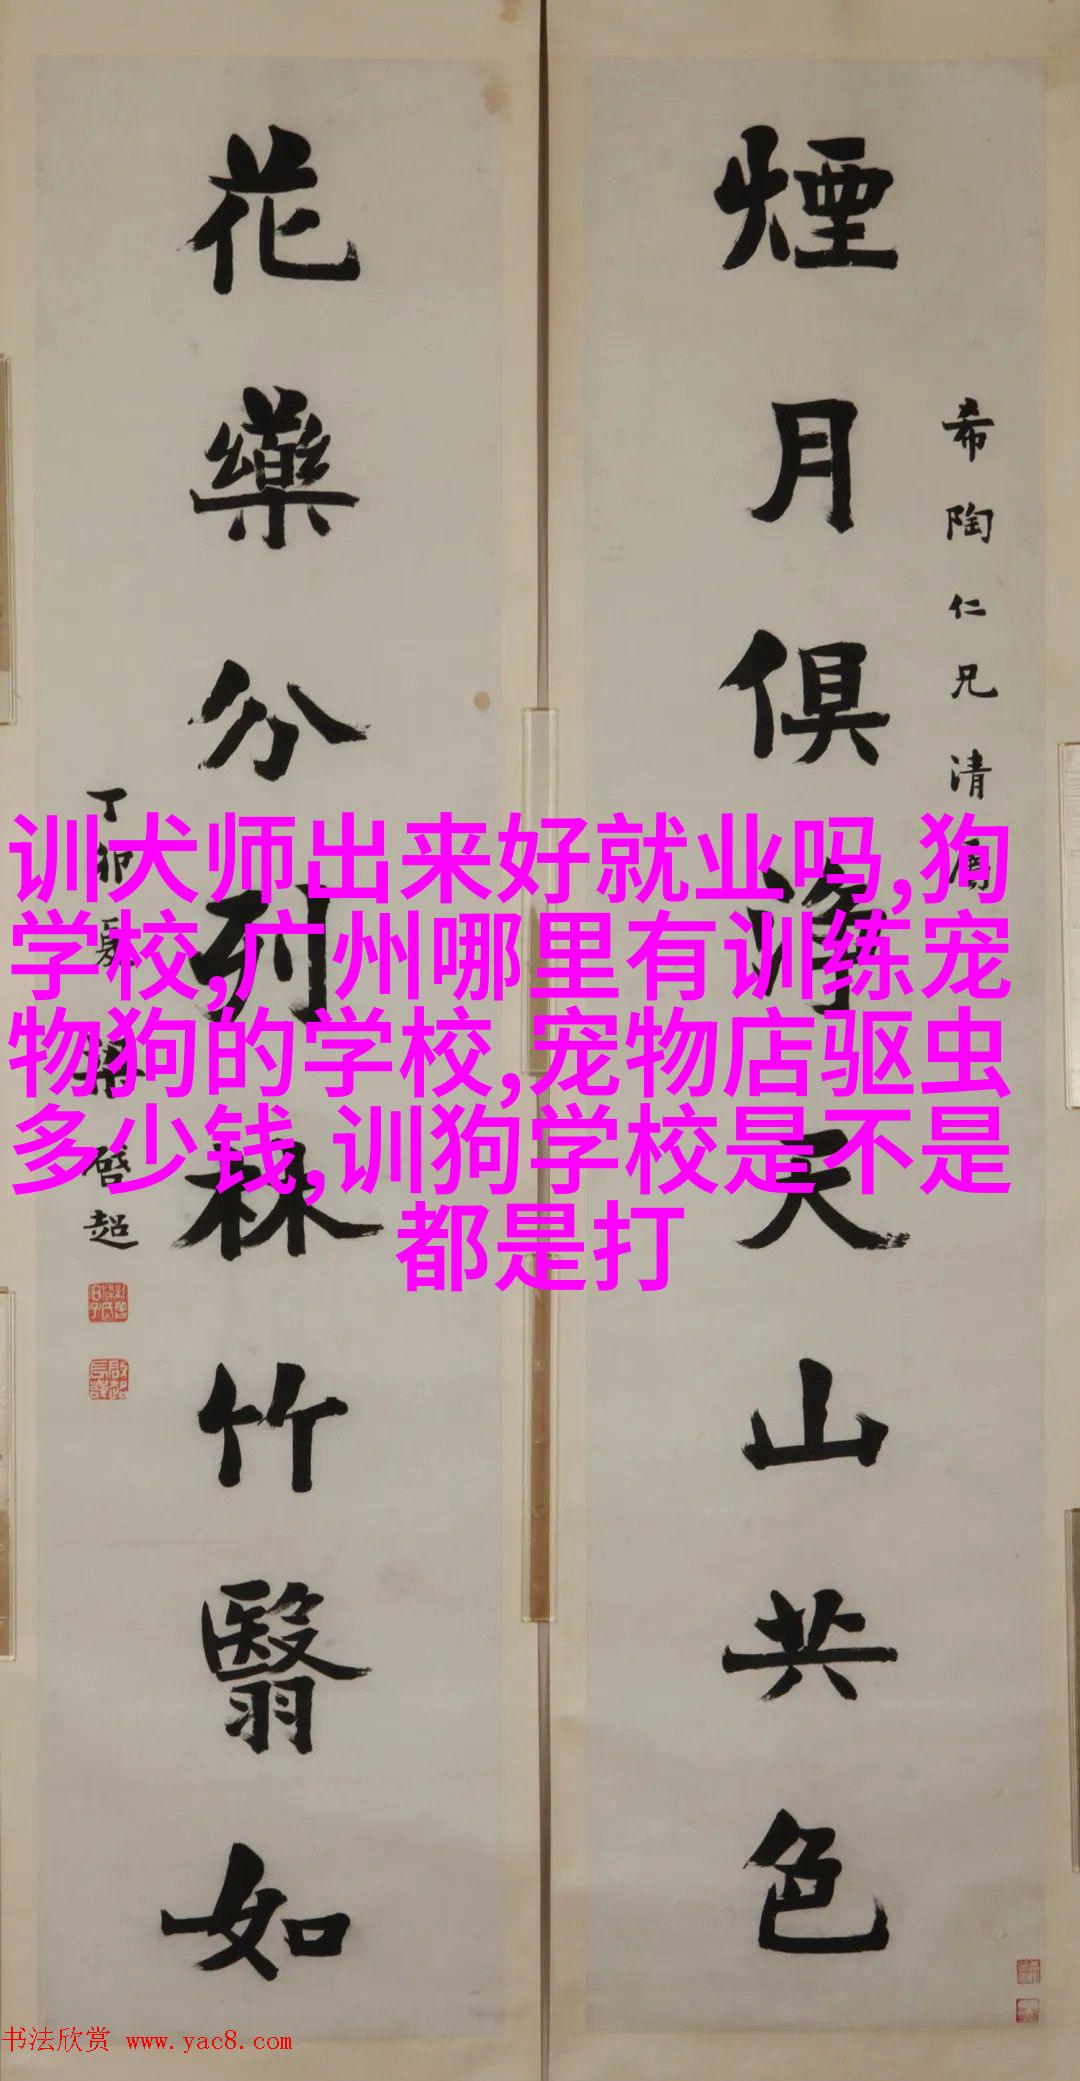 煙月俱淨天山共色
希陶仁兄清属
花藥分列林竹翳如
丁卯夏梁啓超
训犬师出来好就业吗,狗
学校,广州哪里有训练宠
物狗的学校,宠物店驱虫
多少钱,训狗学校是不是
都是打
书法欣赏 www.yac8.com